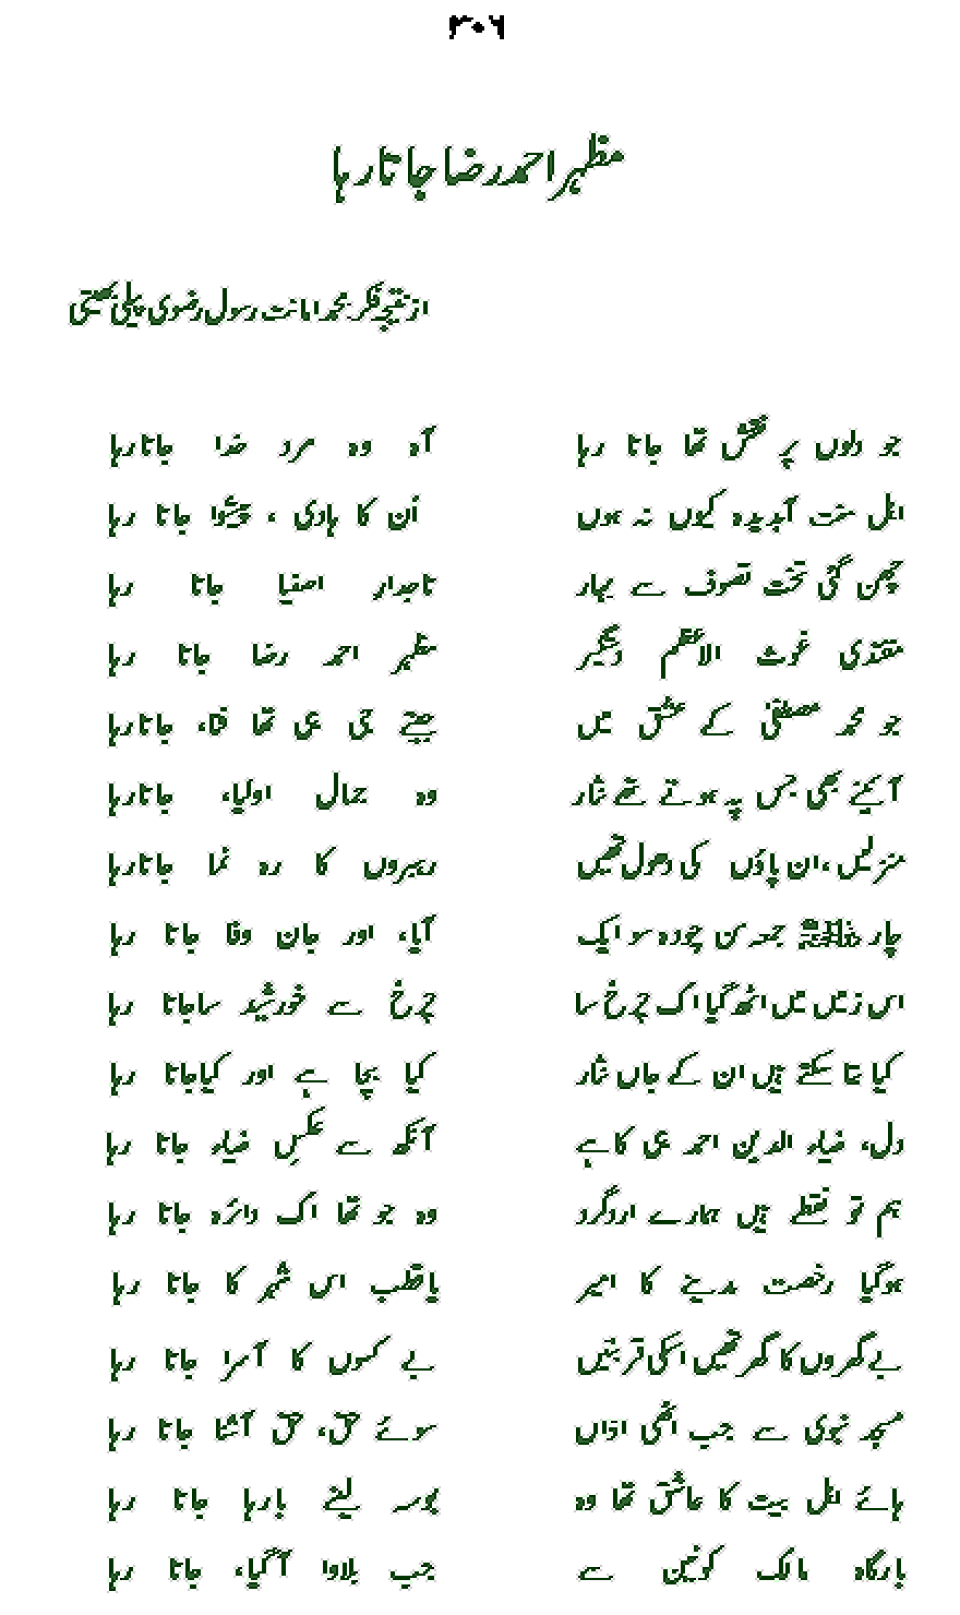 ۳۰۶
مظہر احمد رضا جاتا رہا
از نتیجہ فکر محمد امانت رسول رضوی پیلی بھیتی
جو دلوں پر نقش تھا جاتا رہا آہ وہ مرد خدا جاتا رہا
اہل سنت آبدیدہ کیوں نہ ہوں اُن کا ہادی ، پیشوا جاتا رہا
چھن گئی تخت تصوف سے بہار تاجدار اصفیا جاتا رہا
مقتدی غوث الاعظم دستگیر مظہر احمد رضا جاتا رہا
جو محمد مصطفیٰ کے عشق میں جیتے جی ہی تھا فنا، جاتا رہا
آئینے بھی جس پہ ہوتے تھے نثار وہ جمال اولیا، جاتا رہا
منزلیں ،ان پاؤں کی دھول تھیں رہبروں کا رہ نما جاتا رہا
چار ذی الحجہ جمعہ سن چودہ سو ایک آیا، اور جان وفا جاتا رہا
اس زمیں میں اٹھ گیا اک چرخ سا چرخ سے خورشید سا جاتا رہا
کیا بتا سکتے ہیں ان کے جاں نثار کیا بچا ہے اور کیا جاتا رہا
دل، ضیاء الدین احمد ہی کا ہے آنکھ سے عکسِ ضیاء جاتا رہا
ہم تو نقطے ہیں ہمارے اردگرد وہ جو تھا اک دائرہ جاتا رہا
ہوگیا رخصت مدینے کا امیر یا قطب اس شہر کا جاتا رہا
بے گھروں کا گھر تھیں اسکی قربتیں بے کسوں کا آسرا جاتا رہا
مسجد نبوی سے جب اٹھی اذاں سوئے حق، حق آشنا جاتا رہا
ہائے اہل بیت کا عاشق تھا وہ بوسہ لینے بارہا جاتا رہا
بارگاہ مالک کونین سے جب بلاوا آگیا، جاتا رہا